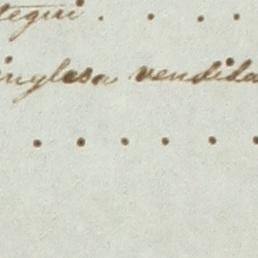 tegui . . . .
inglesa vendida
. . . . . .